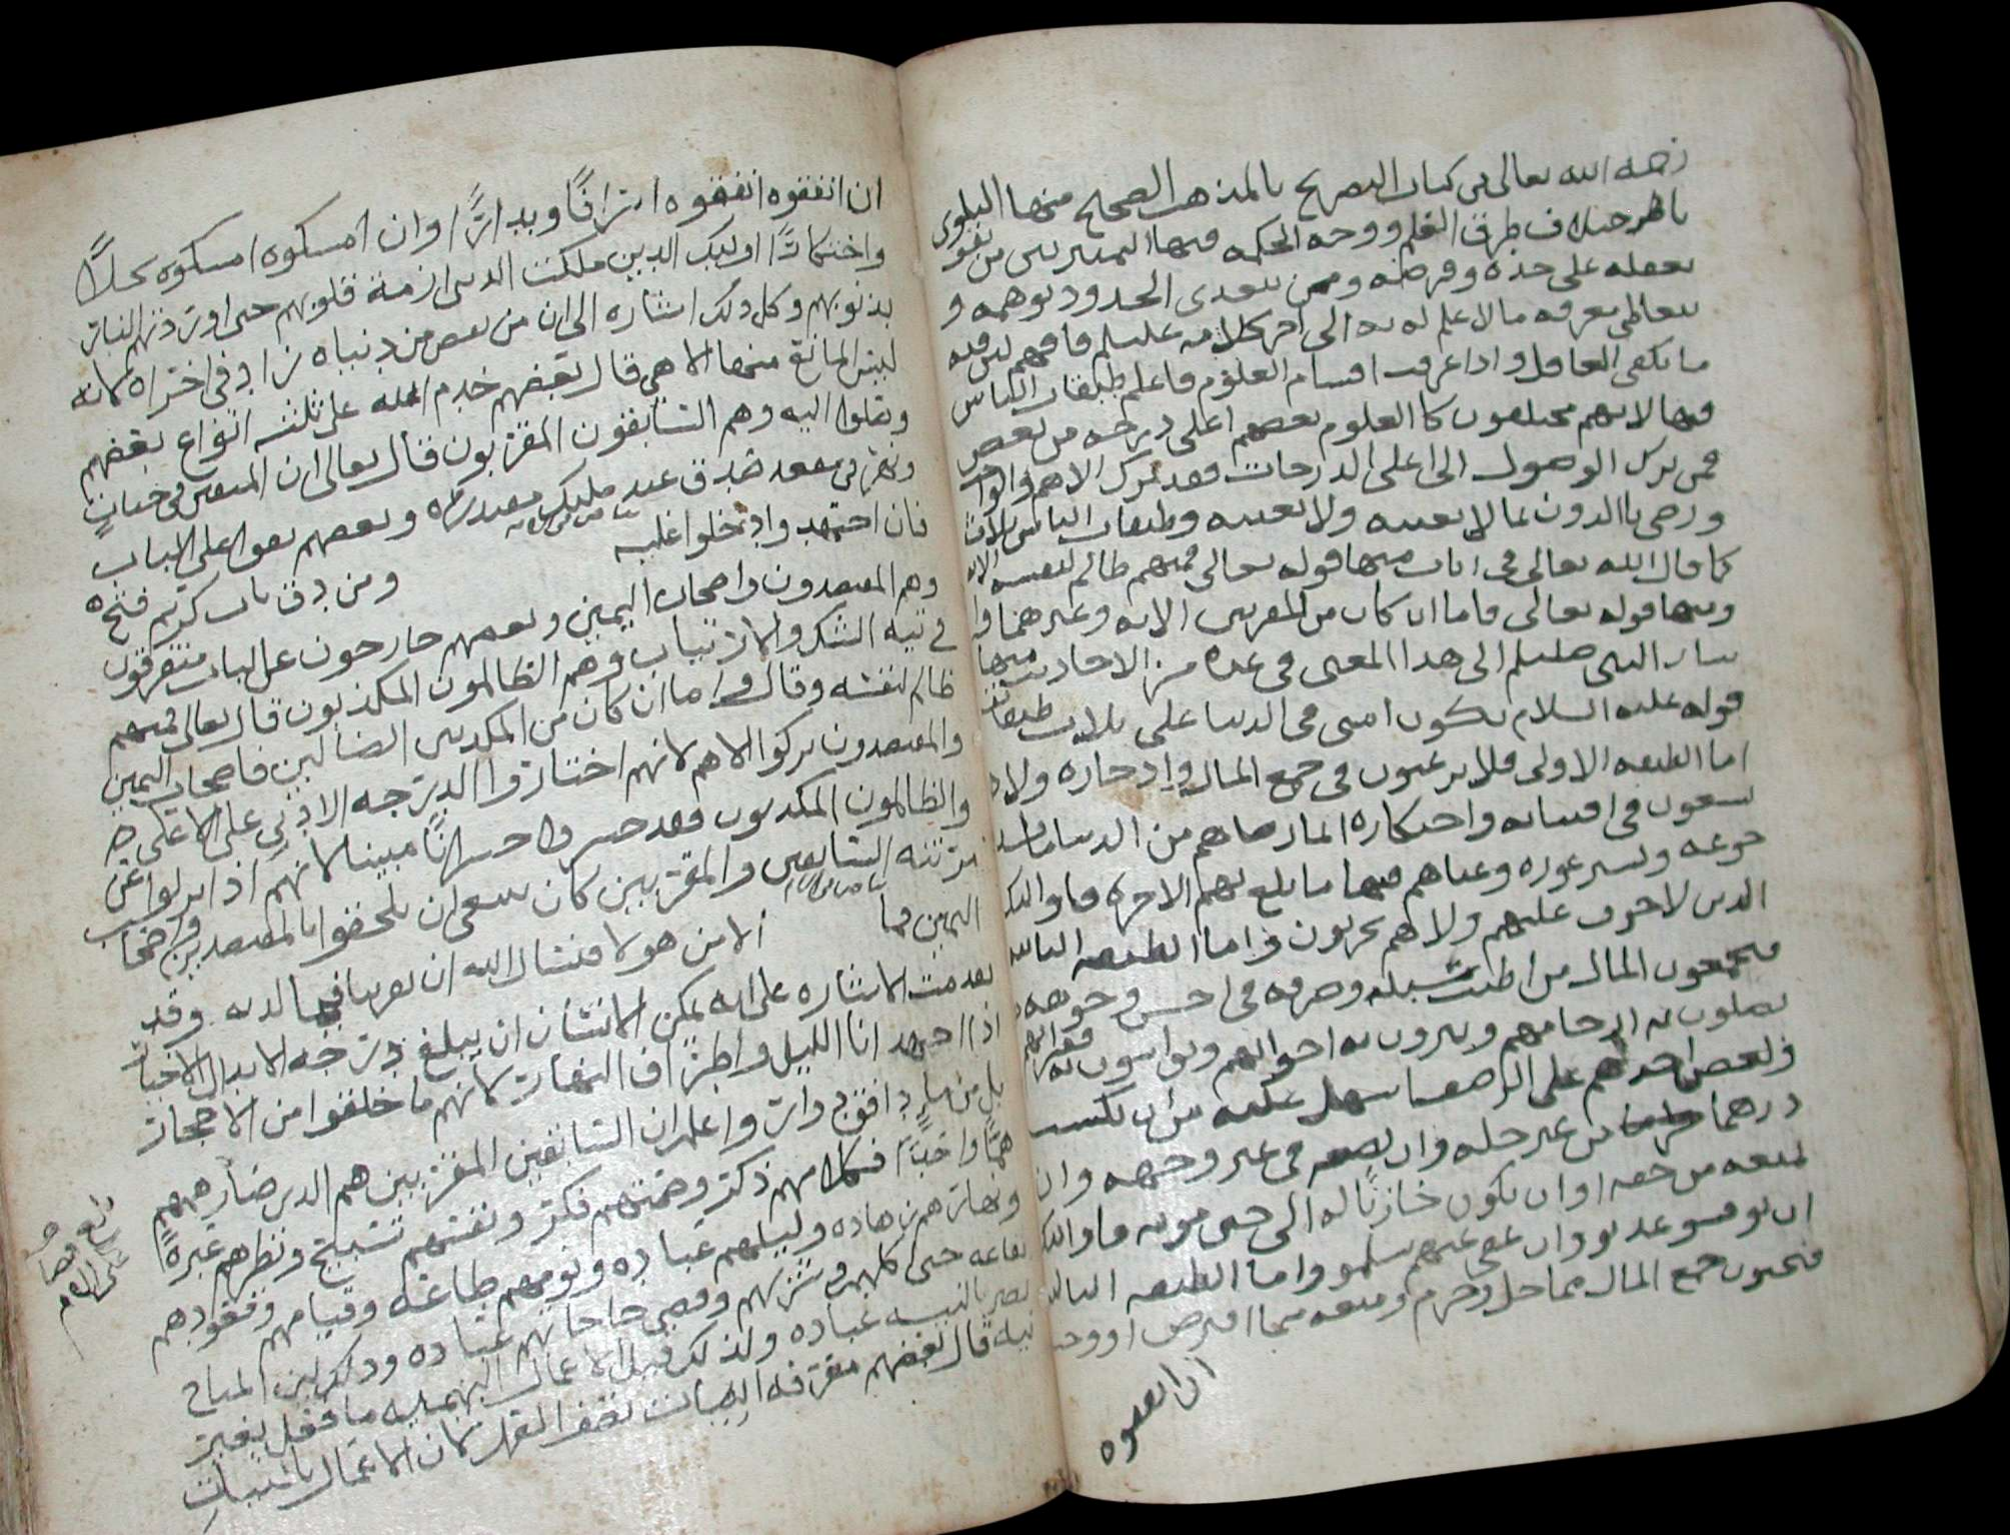 رحمه الله تعالى في كتاب التصريح بالمذهب الصحيح منها البلوى
باظهر خلاف طرق القلم ووجه الحكمه فيها التمييز بين من يقو
بعقله على حده وفرضه وممن يتعدى الحدود بوهمه و
يتعاطى معرفه ما لا علم له به الى اخر كلامه عليلم فافهم ففيه
ما يكفي العاقل واذا عرفت اقسام العلوم فاعلم طبقات الناس
فيها لانهم مختلفون كا العلوم بعضهم اعلى درجه من بعض
فمن ترك الوصول الى اعلى الدرجات فقد ترك الاهم والواجب
ورضى باالدون بما لا يعنيه ولا يعينه وطبقات الناس ثلاث
كما قال الله تعالى في ايات منها قوله تعالى فمنهم ظالم لنفسه الايه
ومنها قوله تعالى فاما ان كان من المقربين الايه وغيرهما وا
شار النبي صليلم الى هذا المعنى في عده من الاحاديث منها
قوله عليه السلام تكون امتي في الدنيا على ثلاث طبقات
اما الطبقه الاولى فلا يرغبون في جمع المال وادخاره ولا
يسعون في اقتنائه واحتكاره انما رضاهم من الدنيا ما سد
جوعه وستر عوره وغناهم فيها ما بلغ بهم الاخره فاولئك
الذين لا خوف عليهم ولا هم يحزنون واما الطبقه الثانيه
فيجمعون المال من اطيب سبله وصرفه في احسن وجوهه
يصلون به ارحامهم ويبرون به اخوانهم ويواسون به فقرائهم
ولعض احدهم على الرصف اسهل عليه من ان يكتسب
درهما من غير حله وان يضعه في غير وجهه وان
يمنعه من حقه او ان يكون خازنا له الى حين موته فاولئك
ان نوقشو عذبو وان عفي عنهم سلمو واما الطبقه الثالثه
فيحبون جمع المال مما حل وحرم ومنعه مما افترض او وجب
ان انفقوه
ان انفقوه انفقوه اسرافًا وبدارًا وان امسكوه امسكوه بخلًا
واحتكارًا اوليك الذين ملكت الدنيا ازمة قلوبهم حتى اوردتهم النار
بذنوبهم وكل ذلك اشاره الى ان من نقص من دنياه زاد في اخراه لكنه
ليس المانع منها الا هي قال بعضهم خدم الله على ثلثه انواع بعضهم
وصلوا اليه وهم السابقون المقربون قال تعالى ان المتقين في جنات
ونهر في مقعد صدق عند مليك مقتدر وبعضهم بقوا على الباب
فان اجتهد وادخلوا عليه ومن دق باب كريم فتح
وهم المقتصدون واصحاب اليمين وبعضهم خارجون عن الباب متفرقون
في تيه الشك والارتياب وهم الظالمون المكذبون قال تعالى فمنهم
ظالم لنفسه وقال واما ان كان من المكذبين الضالين فاصحاب اليمين
والمقتصدون تركوا الاهم لانهم اختاروا الدرجه الادنى على الاعلى
والظالمون المكذبون فقد خسروا خسرانًا مبينا لانهم اذا نزلوا عن
مرتبه السابقين والمقربين كان ينبغي ان يلحقوا بالمقتصدين واصحاب
اليمين فما الا من هولا فنسال الله ان يقربنا فيما لديه وقد
تقدمت الاشاره على انه يمكن الانسان ان يبلغ درجه الابدال الاخيار
اذا اجتهد انا الليل واطراف النهار لانهم ما خلقوا من الاحجار
بل من واعلم ان السابقين المقربين هم الذين صار همهم
همًا واحدًا فكلامهم ذكر وصمتهم فكر ونفسهم تسبيح ونظرهم عبرةً
ونهارهم زهاده وليلهم عباده ونومهم طاعه وقيامهم وقعودهم
طاعه حتى اكلهم وشربهم وقضى حاجاتهم عباده وذلك لان المباح
يصير بالنيه عباده ولذلك قيل الاعمال البهيميه ما فعل بغير
نيه قال بعضهم معرفه النيات نصف العلم لان الاعمال بالنيات